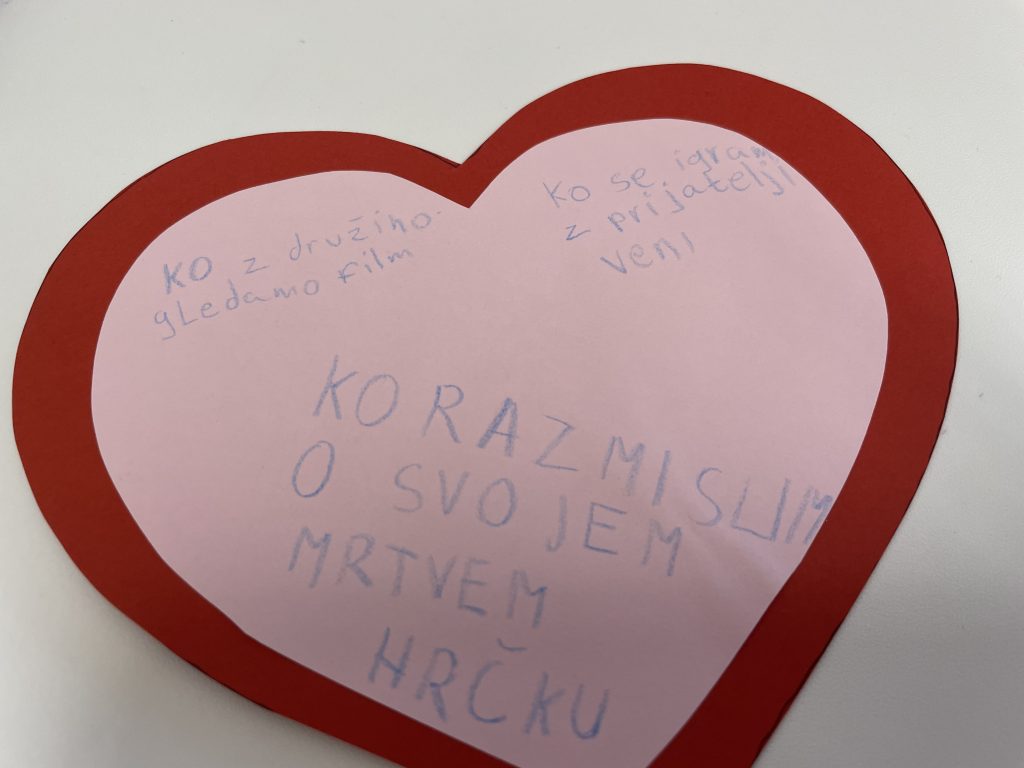 KO z družino
gledamo film
ko se igram
z prijatelji
veni
KO RAZMISLIM
O SVOJEM
MRTVEM
HRČKU